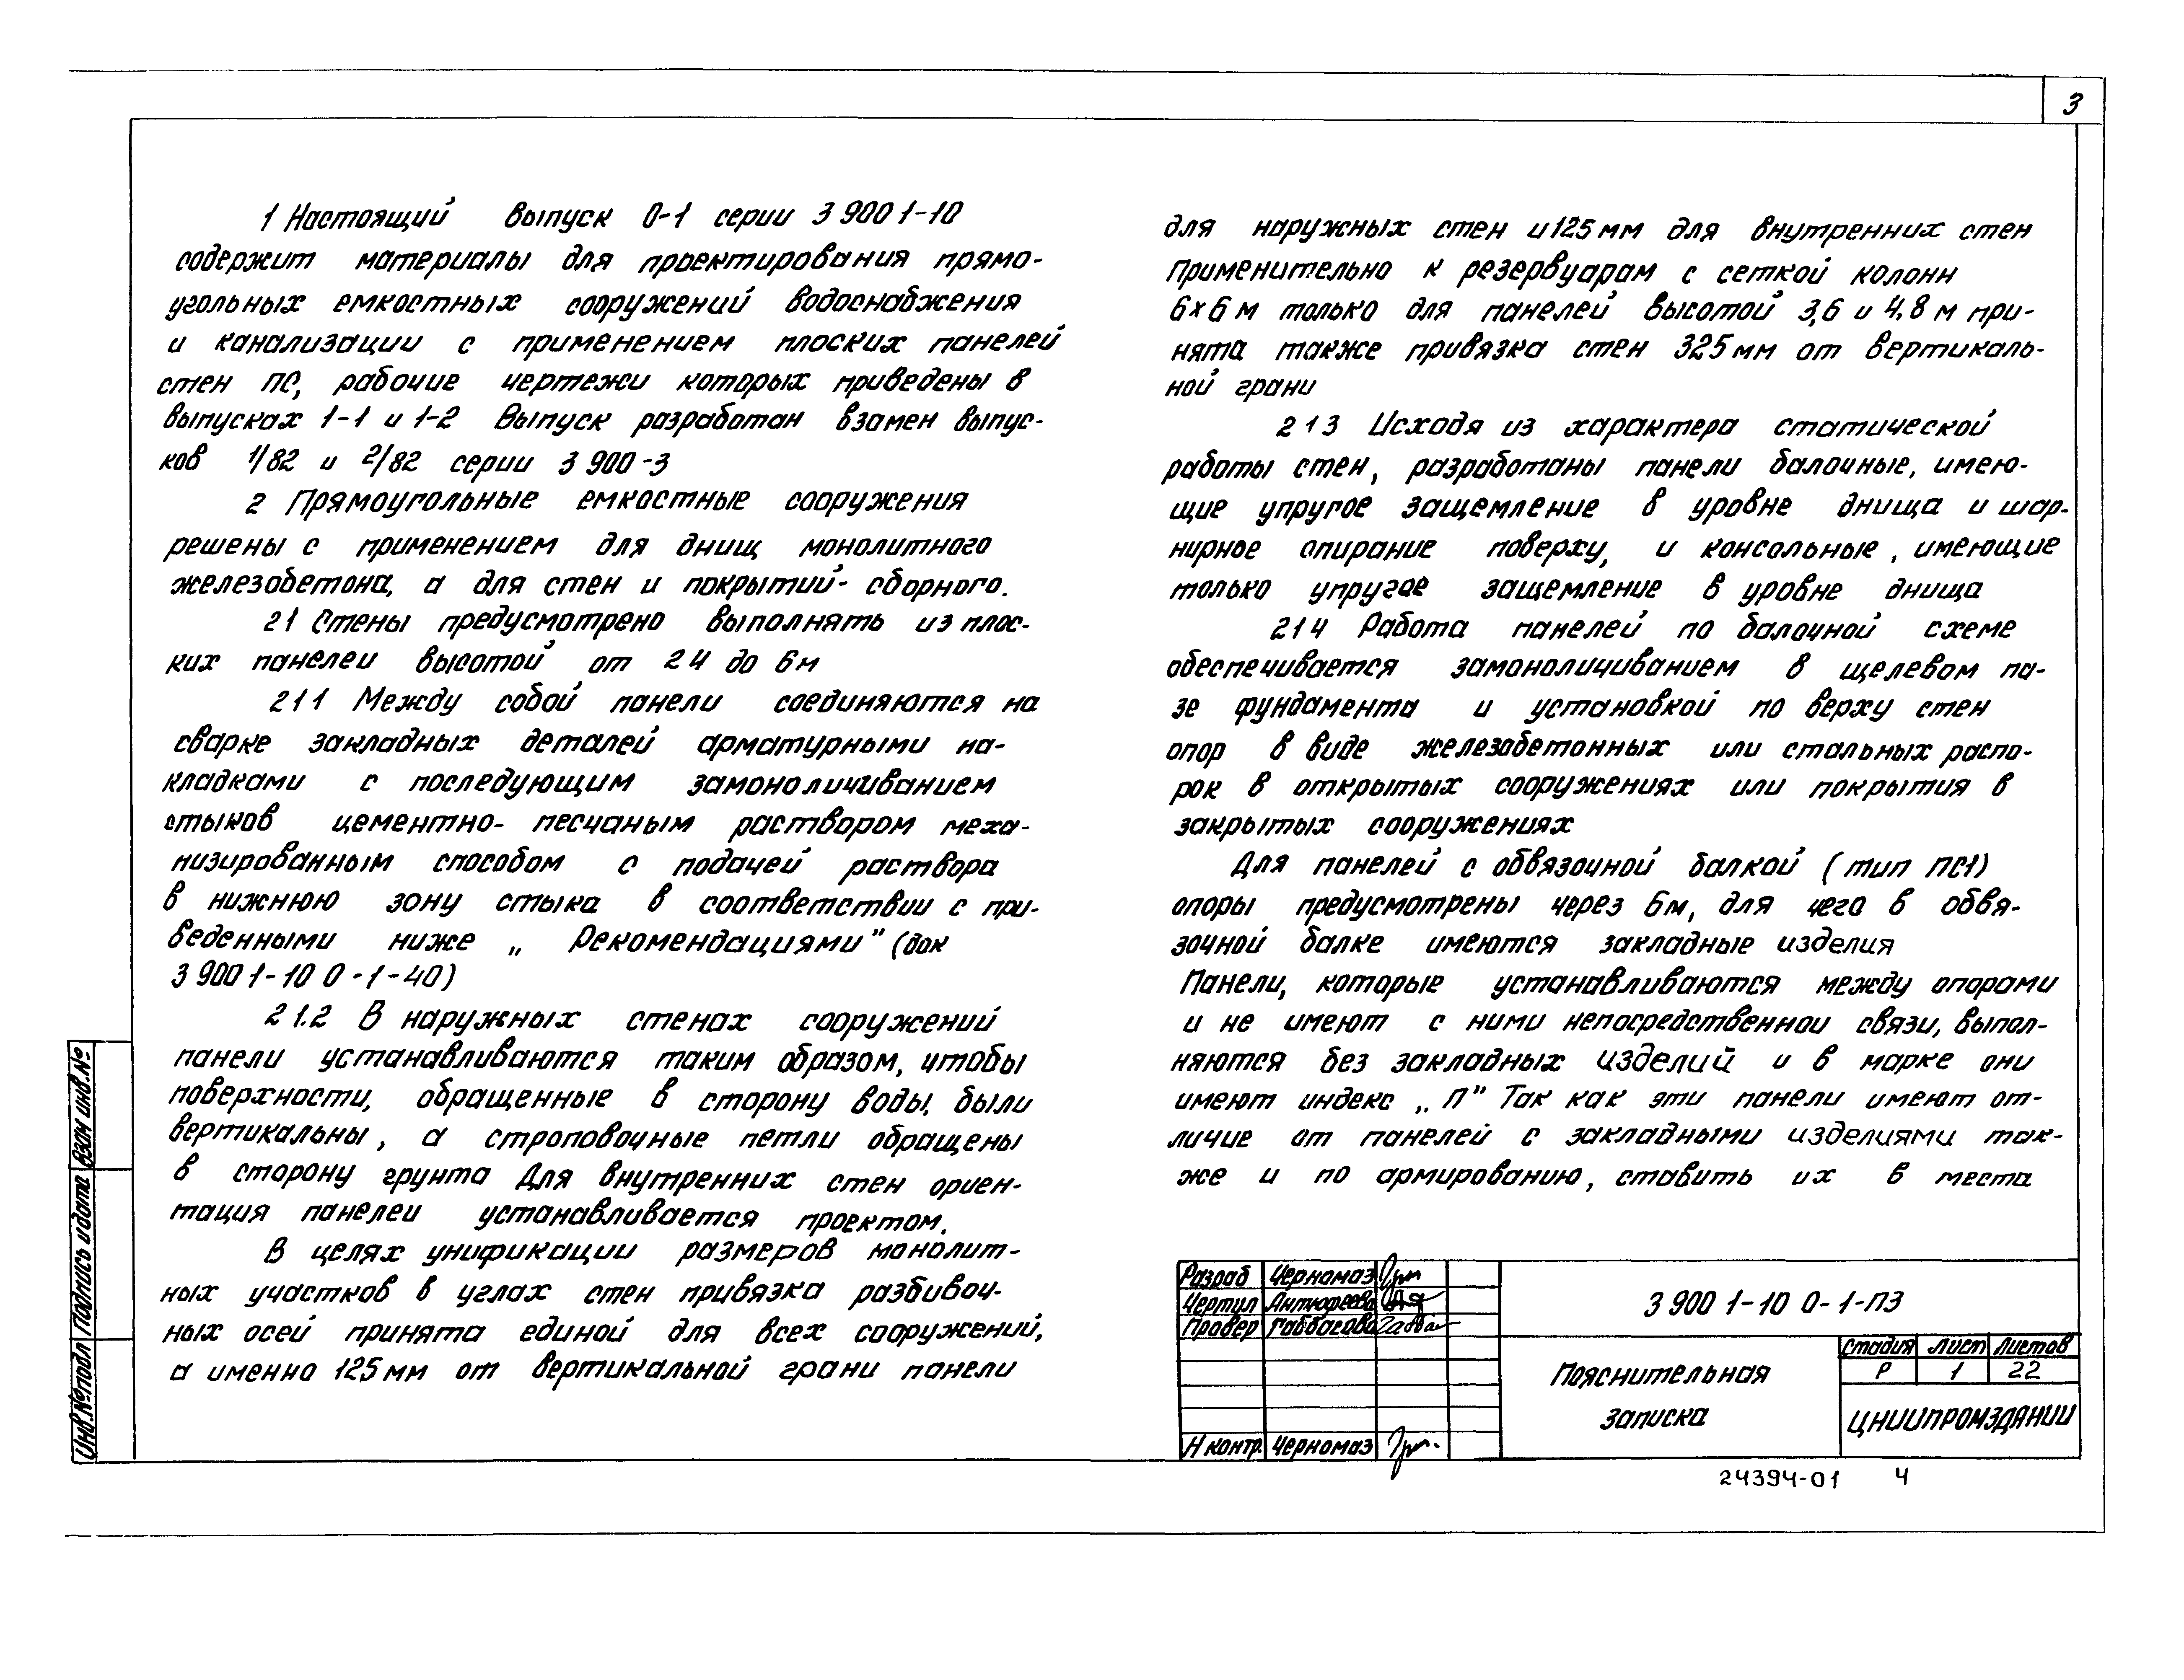 3
1 Настоящий выпуск 0-1 серии 3 900 1-10
содержит материалы для проектирования прямо-
угольных емкостных сооружений водоснабжения
и канализации с применением плоских панелей
стен ПС, рабочие чертежи которых приведены в
выпусках 1-1 и 1-2 Выпуск разработан взамен выпус-
ков 1/82 и 2/82 серии 3 900-3
2 Прямоугольные емкостные сооружения
решены с применением для днищ монолитного
железобетона, а для стен и покрытий- сборного.
2 1 Стены предусмотрено выполнять из плос-
ких панелеи высотой от 2 4 до 6 м
2 1 1 Между собой панели соединяются на
сварке закладных деталей арматурными на-
кладками с последующим замоноличиванием
стыков цементно- песчаным раствором меха-
низированным способом с подачей раствора
в нижнюю зону стыка в соответствии с при-
веденными ниже „ Рекомендациями" (док
3 900 1-10 0-1-40)
2 1.2 В наружных стенах сооружений
панели устанавливаются таким образом, чтобы
поверхности, обращенные в сторону воды, были
вертикальны, а строповочные петли обращены
в сторону грунта Для внутренних стен ориен-
тация панелеи устанавливается проектом.
В целях унификации размеров монолит-
ных участков в углах стен привязка разбивоч-
ных осей принята единой для всех сооружений,
а именно 125 мм от вертикальной грани панели
для наружных стен и 125 мм для внутренних стен
Применительно к резервуарам с сеткой колонн
6×6 м только для панелей высотой 3,6 и 4,8 м при-
нята также привязка стен 325 мм от вертикаль-
ной грани
2 1 3 Исходя из характера статической
работы стен, разработаны панели балочные, имею-
щие упругое защемление в уровне днища и шар-
нирное опирание поверху, и консольные, имеющие
только упругое защемление в уровне днища
2 1 4 Работа панелей по балочной схеме
обеспечивается замоноличиванием в щелевом па-
зе фундамента и установкой по верху стен
опор в виде железобетонных или стальных распо-
рок в открытых сооружениях или покрытия в
закрытых сооружениях
Для панелей с обвязочной балкой (тип ПС1)
опоры предусмотрены через 6 м, для чего в обвя-
зочной балке имеются закладные изделия
Панели, которые устанавливаются между опорами
и не имеют с ними непосредственнои связи, выпол-
няются без закладных изделий и в марке они
имеют индекс „ П" Так как эти панели имеют от-
личие от панелей с закладными изделиями так-
же и по армированию, ставить их в места
Разраб Черномаз
Чертил Антюфеева
Провер Габбасова
Н контр. Черномаз
3 900 1-10 0-1-ПЗ
Пояснительная
записка
Стадия Лист Листов
Р 1 22
ЦНИИПРОМЗДАНИИ
24394-01 4
Инв.№ подл Подпись и дата Взам инв.№